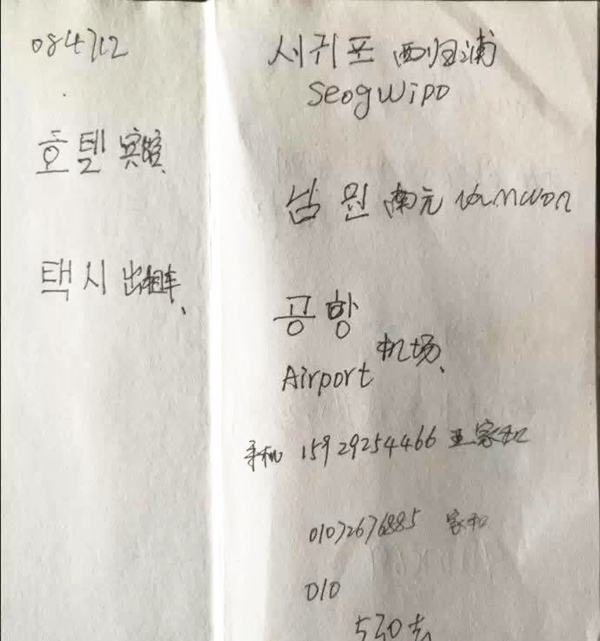 084712
호텔 宾馆、
택시 出租车、
서귀포 西归浦
Seogwipo
남원 南元 Namwon
공항
Airport 机场、
手机 15929254466 王家和
01072676885 家和
010
530